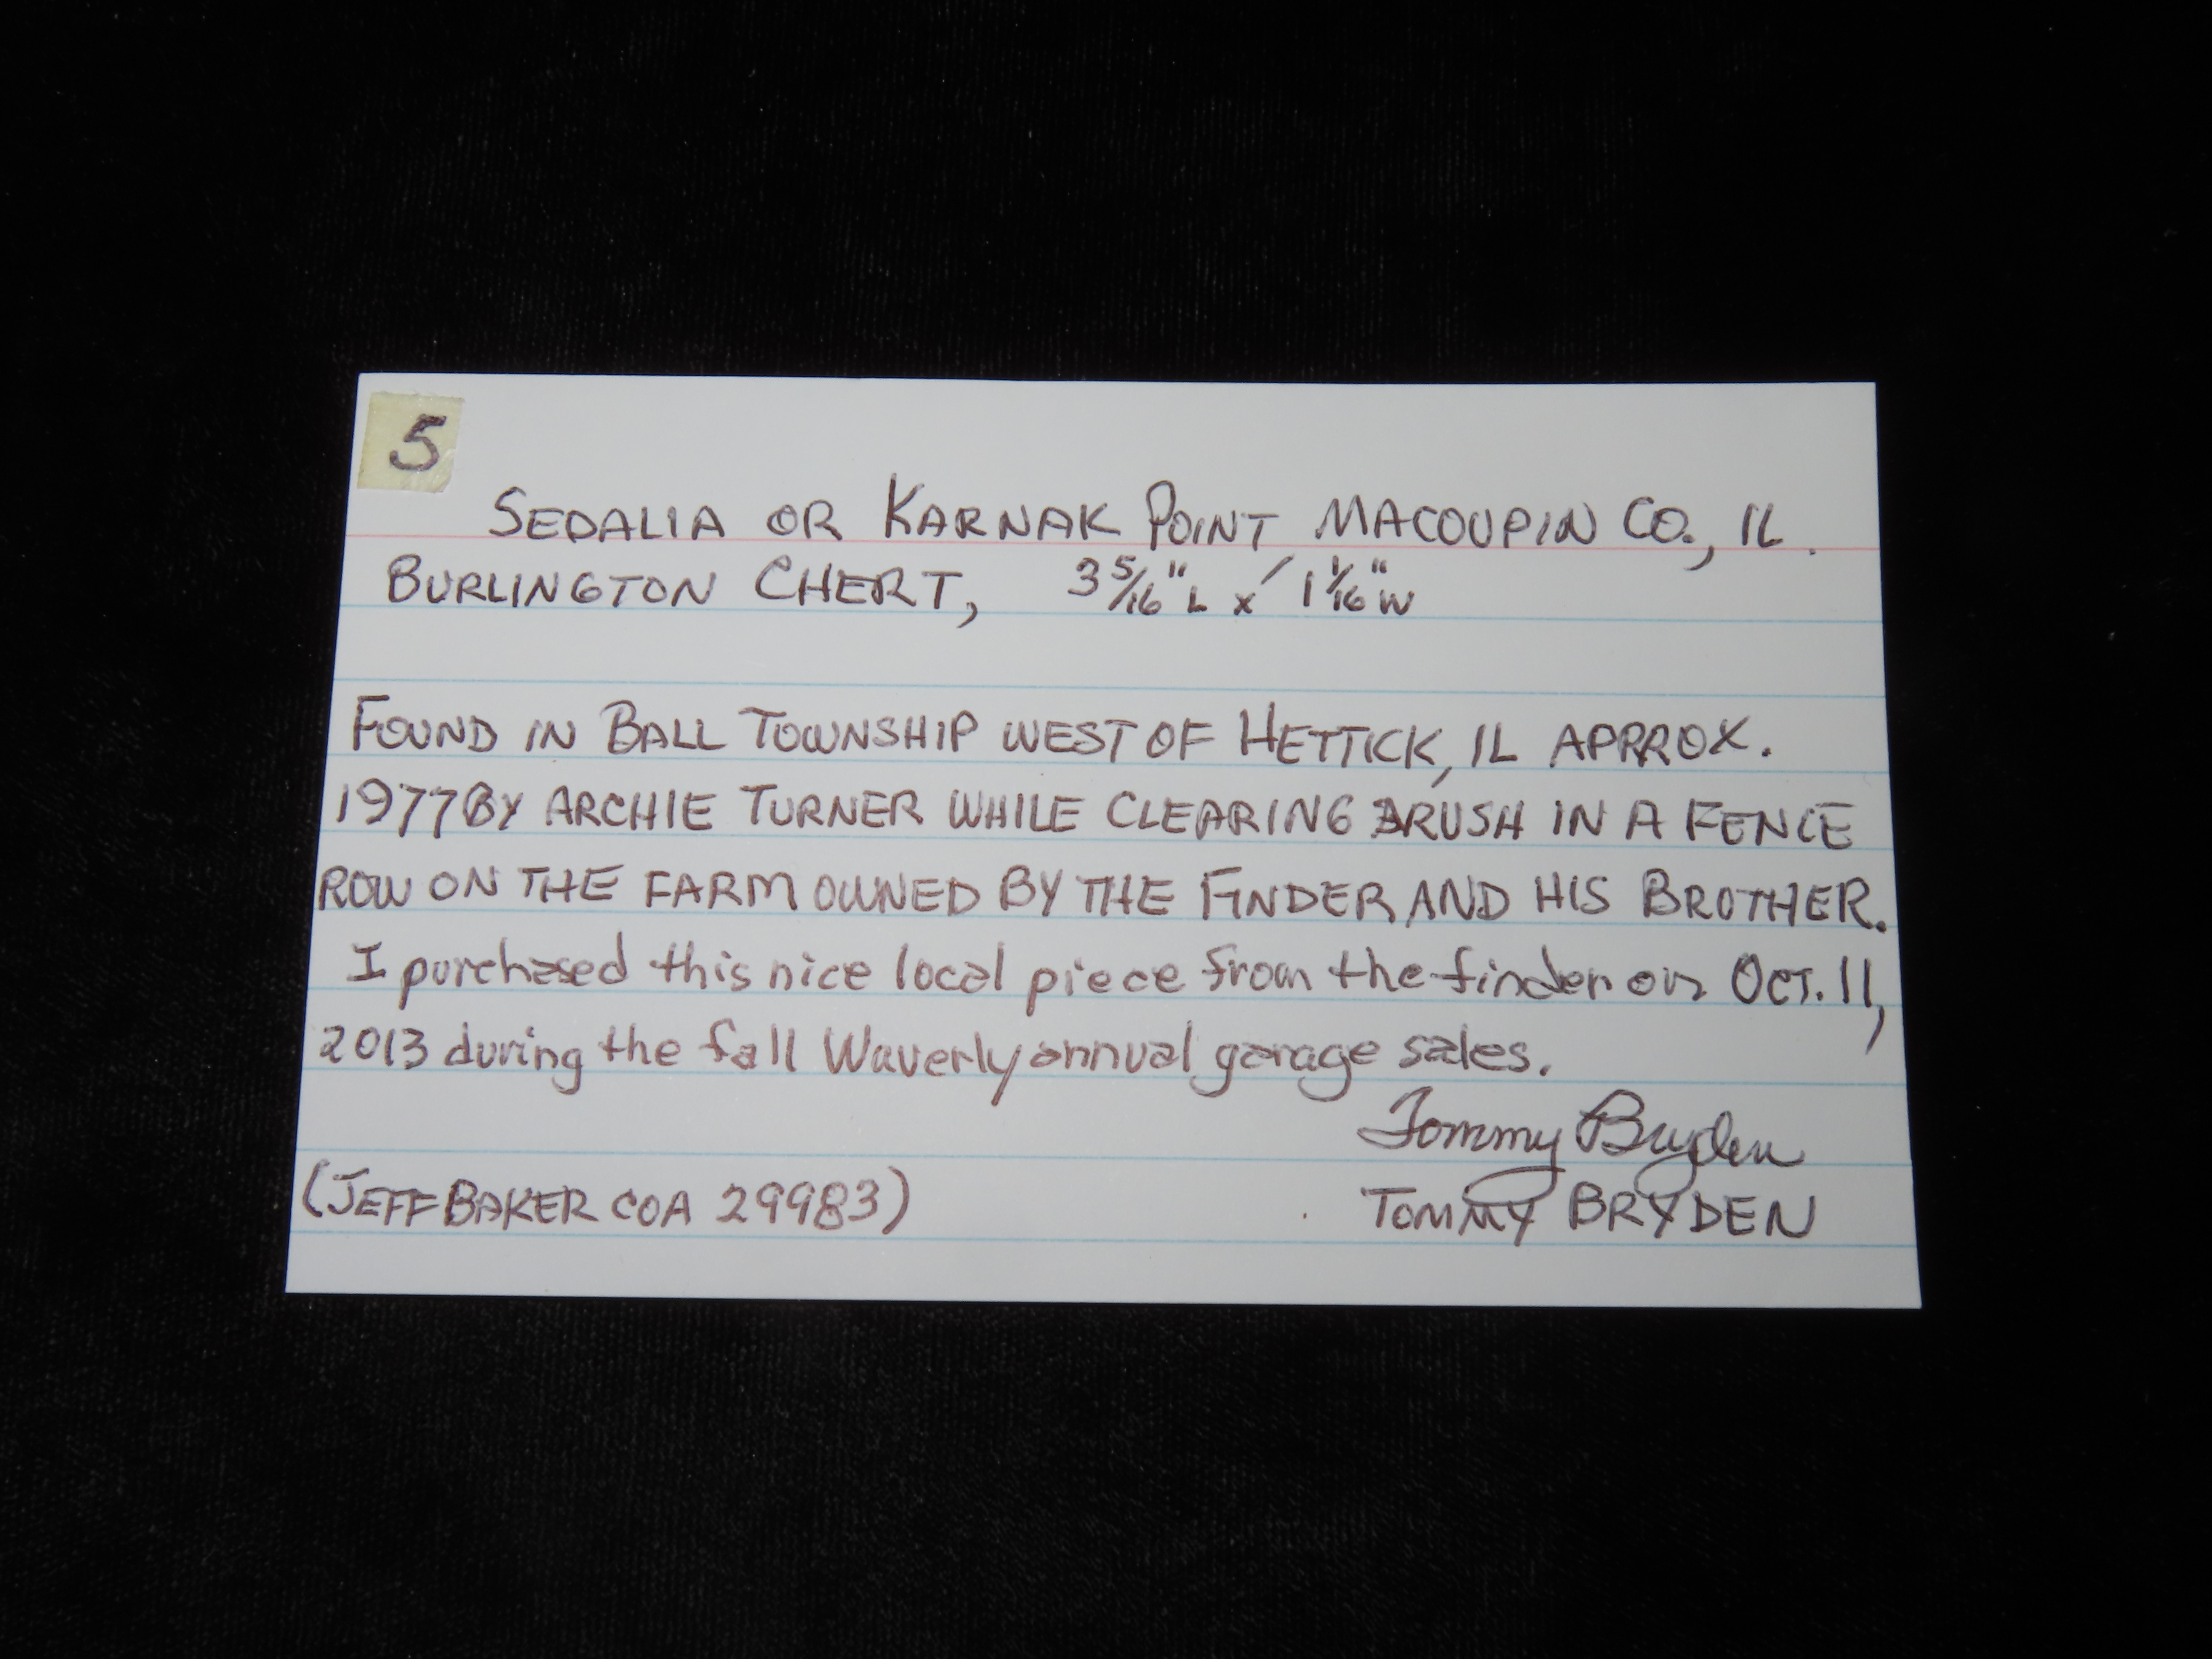 5
SEDALIA OR KARNAK POINT MACOUPIN CO., IL.
BURLINGTON CHERT, 3 5/16" L x 1 1/16" W
FOUND IN BALL TOWNSHIP WEST OF HETTICK, IL APPROX.
1977 BY ARCHIE TURNER WHILE CLEARING BRUSH IN A FENCE
ROW ON THE FARM OWNED BY THE FINDER AND HIS BROTHER.
I purchased this nice local piece from the finder on OCT. 11,
2013 during the fall Waverly annual garage sales.
Tommy Bryden
(JEFF BAKER COA 29983) TOMMY BRYDEN